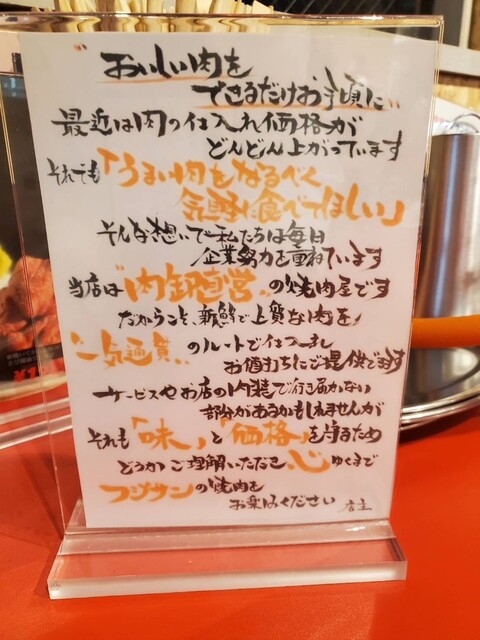 "おいしい肉を
できるだけお手頃に"
最近は肉の仕入れ価格が
どんどん上がっています
それでも「うまい肉をなるべく
気軽に食べてほしい」
そんな想いで私たちは毎日
企業努力を重ねています
当店は"肉卸直営"の焼肉屋です
だからこそ、新鮮で上質な肉を
"一気通貫"のルートで仕入れし
お値打ちにご提供できます
サービスやお店の内装で行き届かない
部分があるかもしれませんが
それも「味」と「価格」を守るため
どうかご理解いただき、心ゆくまで
フジサンの焼肉を
お楽しみください 店主